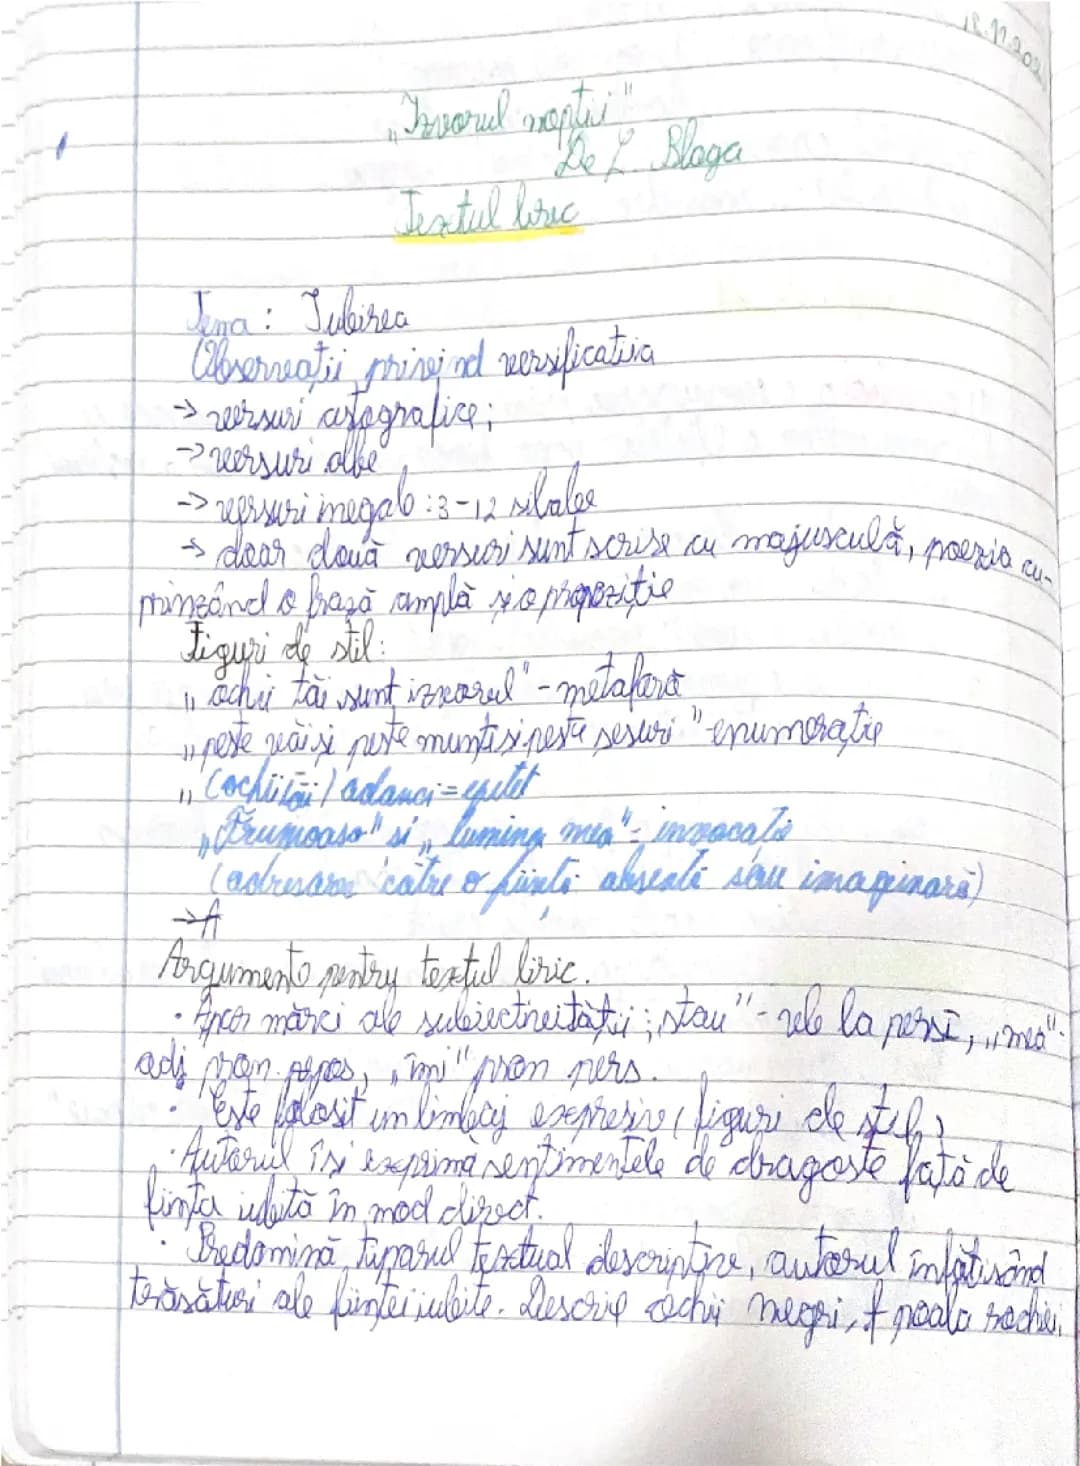 18.11.202
„Izvorul nopții"
De L. Blaga
Textul liric
Tema: Iubirea
Observații privind versificatiia
→ versuri astografice;
→ versuri albe
→ versuri inegale: 3-12 silabe
→ doar două versuri sunt scrise cu majusculă, poezia cu-
prinzând o frază amplă și o propoziție
Figuri de stil:
„ochii tăi sunt izvorul" - metaforă
„peste văi și peste munți si peste sesuri" - enumerație
„(ochii tăi) adanci = epitet
„Frumoaso" si „lumina mea" = invocație
(adresare către o ființă absentă sau imaginară)
→ A
Argumente pentru textul liric.
· Apar mărci ale subiectivității: „stau" - vb la pers I, „mea" -
adj pron. popos, „îmi" pron pers.
· Este folosit un limbaj expresiv (figuri de stil)
· Autorul își exprimă sentimentele de dragoste față de
ființa iubită în mod direct.
· Predomină tiparul textual descriptiv, autorul înfățisând
trăsături ale ființei iubite. Descrie ochii negri, poala rochiei,